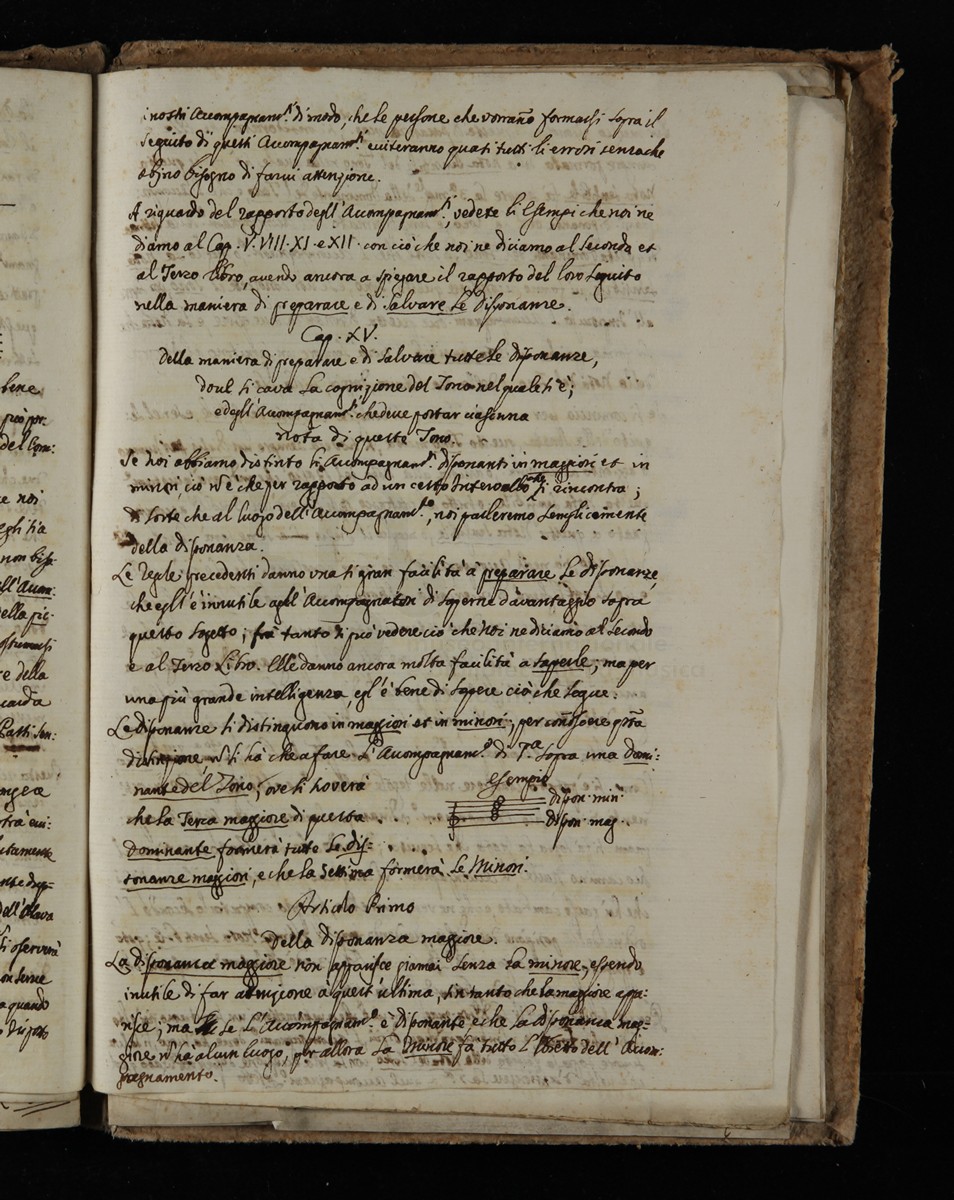 bene
più por:
del Com:
e noi
egli hà
non biso-
ll'Acom:
della pic-
ostumarsi
re della
ngea
ctamente
dell'Otava
si oserverà
on serve
a quando
i nostri Accompagnam.ti di modo, che le persone che vorrañо formarsi sopra il
seguito di questi Accompagnam.ti eviteranno quasi tutti li errori senza che
abino bisogno di farvi attenzione.
A riguardo del rapporto degl'Acompagnam.ti, vedete li Esempi che noi ne
diamo al Cap. V. VIII. XI. e XII. con ciò che noi ne diciamo al Secondo et
al Terzo libro, avendo ancora a spiegare il rapporto del loro seguito
nella maniera di preparare e di Salvare Le disonanze.
Cap. XV.
Della maniera di preparare e di Salvare tutte le disonanze,
d'ove si cava La cognizione del Tono nel quale si è;
e degl'Acompagnam.ti che deve portar ciascuna
nota di queste Tono.
Se noi abbiamo distinto li Acompagnam.ti disonanti in maggiori et in
minori, ciò n'è che per rapporto ad un certo Intervallo che si rincontra;
di sorte che al luogo dell'Accompagnam.to, noi parleremo semplicemente
della disonanza.
Le regole precedenti danno una si gran facilità à preparare Le disonanze
che egl'è innutile agl'Accompagnatori di saperne d'avantaggio sopra
questo sogetto; frà tanto si può vedere ciò che noi ne diciamo al Secondo
e al Terzo Libro. Elle danno ancora molta facilità a saperle; ma per
una più grande intelligenza, egl'è bene di sapere ciò che segue:
Le disonanze si distinguono in maggiori et in minori; per conoscere q̃sta
distinzione, n̄ si hà che a fare L'Acompagnam.to di 7.a sopra una Domi:
nante del Tono; ove si troverà
che la Terza maggiore di questa . . .
Dominante formerà tutte Le dis=
sonanze maggiori, e che la Settima formerà Le Minori.
Esempio
dison. min.
dison. mag.
Articolo Primo
Della disonanza maggiore.
La disonanza maggiore non apparisce giamai senza la minore, essendo
inutile di far atenzione a quest'ultima, sin tanto che la maggiore appa:
risce; ma se L'Acompagnam.to è disonante e che la disonanza mag-
giore n̄ hà alcun luogo, per allora La Minore fa tutto L'effetto dell'Acom:
pagnamento.